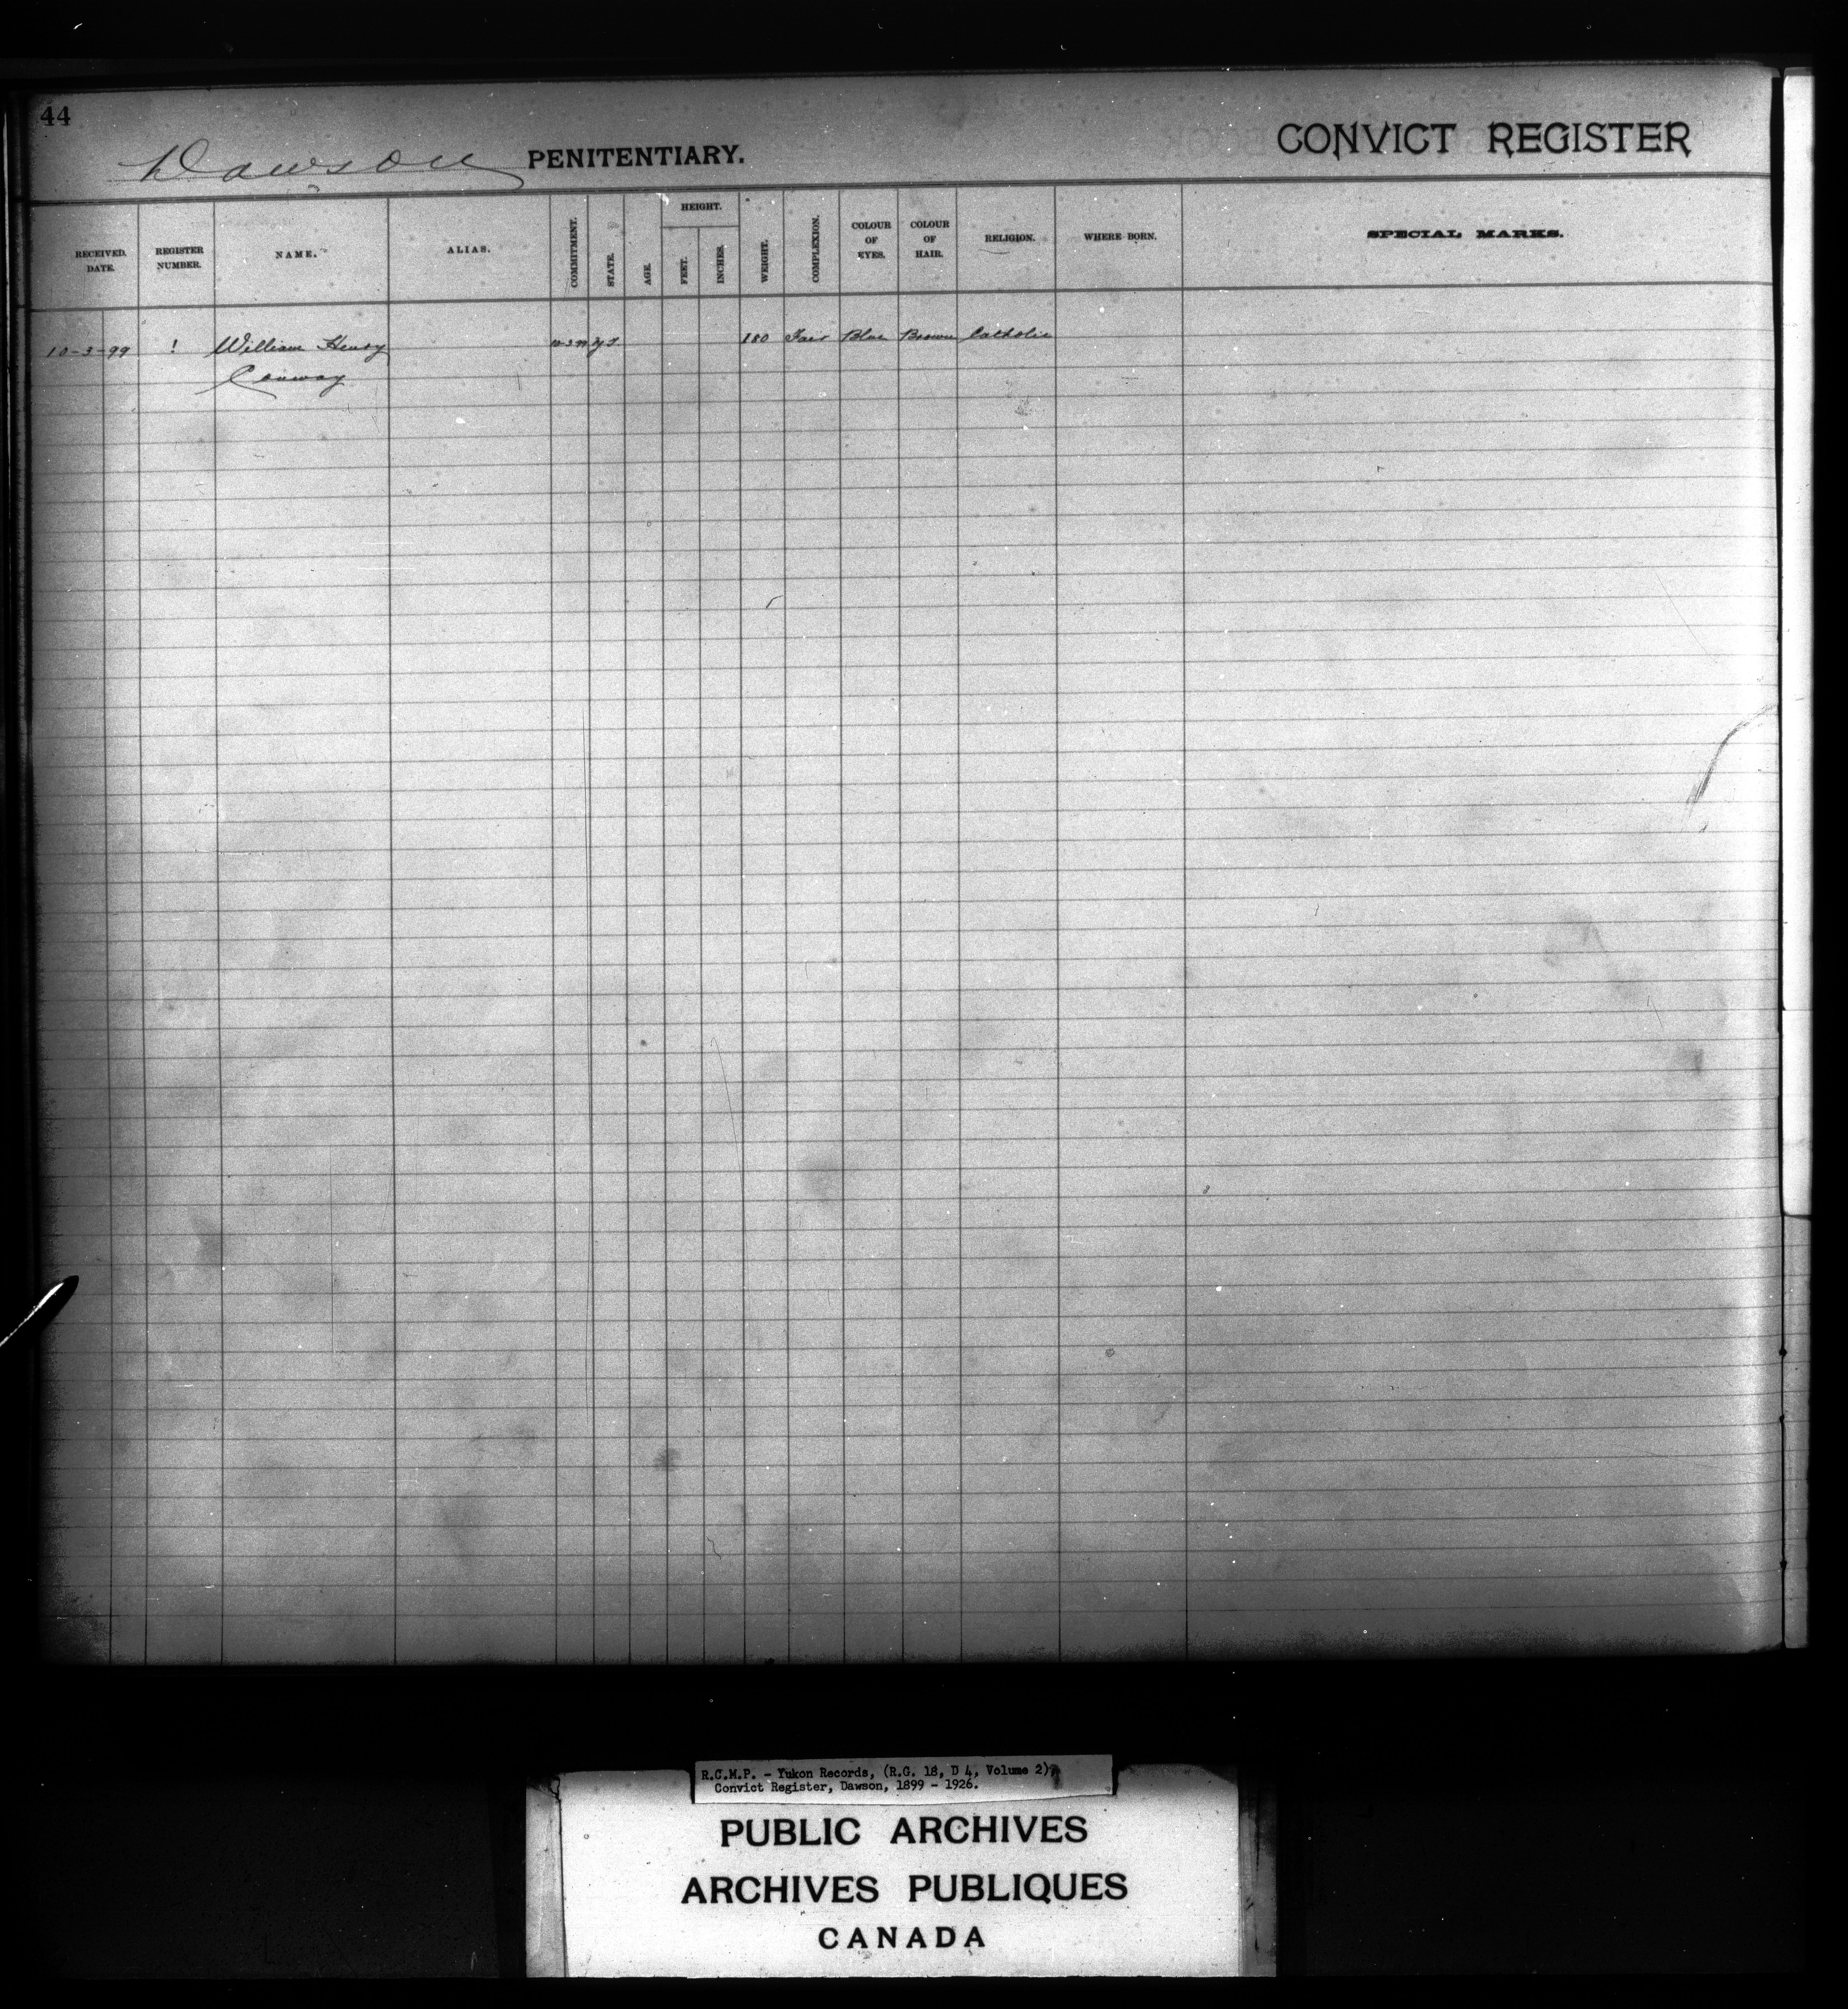 44
Dawson PENITENTIARY. CONVICT REGISTER
RECEIVED. DATE. REGISTER NUMBER. NAME. ALIAS. COMMITMENT. STATE. AGE. HEIGHT. FEET. INCHES. WEIGHT. COMPLEXION. COLOUR OF EYES. COLOUR OF HAIR. RELIGION. WHERE BORN. SPECIAL MARKS.
10-3-99 1 William Henry 10-3-99 Y.T. 180 Fair Blue Brown Catholic
Conway
R.C.M.P. - Yukon Records, (R.G. 18, D 4, Volume 2),
Convict Register, Dawson, 1899 - 1926.
PUBLIC ARCHIVES
ARCHIVES PUBLIQUES
CANADA